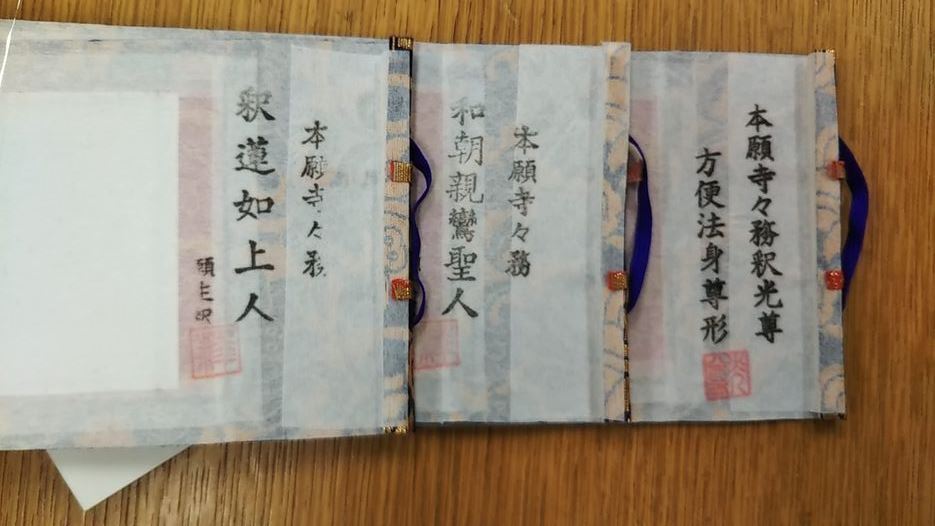 本願寺々務釈光尊
方便法身尊形
本願寺々務
和朝親鸞聖人
本願寺々務
釈蓮如上人
願主釈